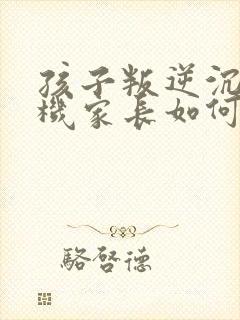 孩子叛逆沉
機家長如何
駱啓德